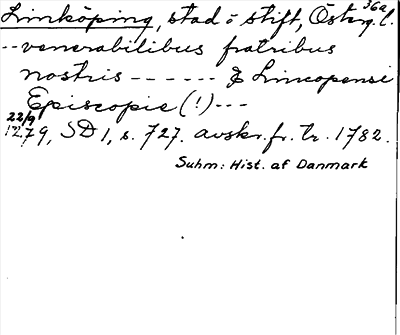 36a
Linköping, stad o stift, Österg. l.
-- venerabilibus fratribus
nostris ------ & Lincopensi
Episcopis (!) ---
22/9
1279, SD 1, s. 727. avskr. fr. tr. 1782.
Suhm: Hist. af Danmark